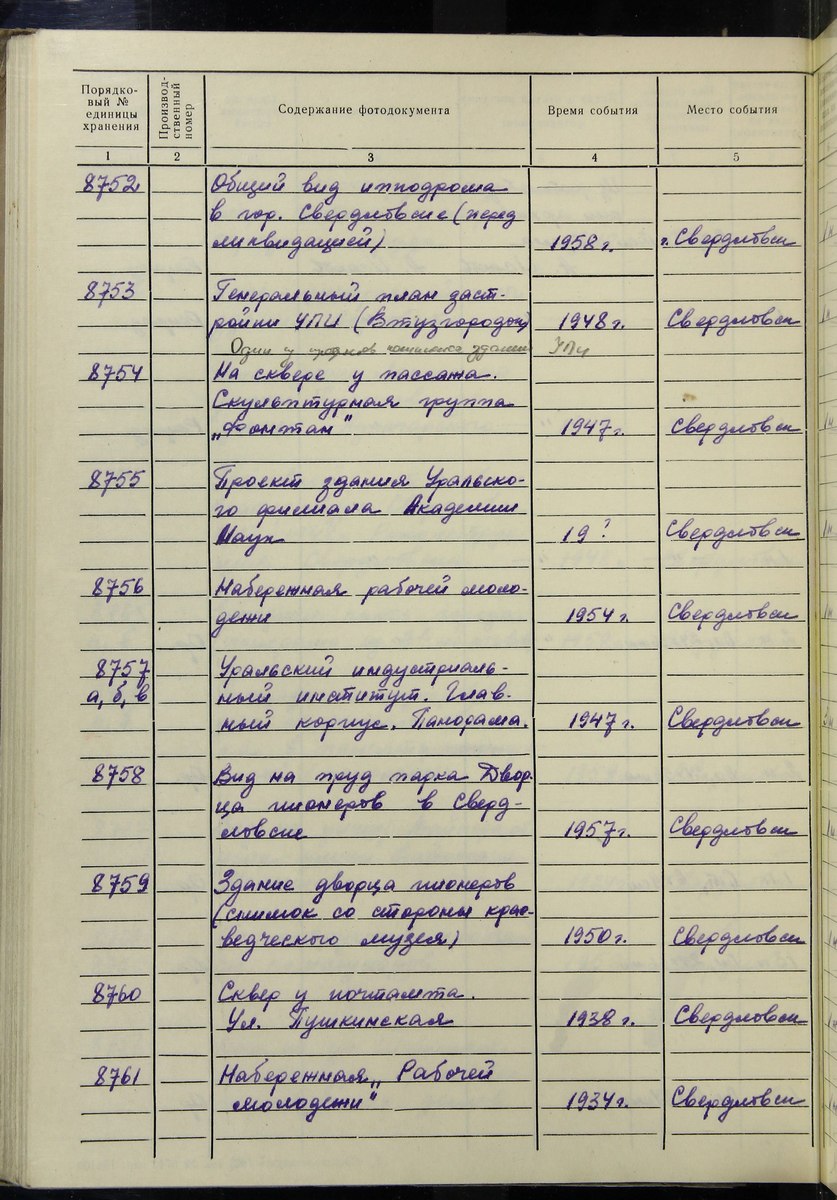 Порядко-
вый №
единицы
хранения
Производ-
ственный
номер
Содержание фотодокумента
Время события
Место события
1 2 3 4 5
8752 Общий вид ипподрома
в гор. Свердловске (перед
ликвидацией) 1958 г. г. Свердловск
8753 Генеральный план заст-
ройки УПИ (Втузгородок) 1948 г. Свердловск
Один у комплекса здания УПИ
8754 На сквере у пассажа.
Скульптурная группа
„Фонтан" 1947 г. Свердловск
8755 Проект здания Уральско-
го филиала Академии
Наук 19 ? Свердловск
8756 Набережная рабочей моло-
дежи 1954 г. Свердловск
8757 Уральский индустриаль-
а, б, в ный институт. Глав-
ный корпус. Панорама. 1947 г. Свердловск
8758 Вид на пруд парка Двор-
ца пионеров в Сверд-
ловске 1957 г. Свердловск
8759 Здание дворца пионеров
(снимок со стороны крае-
ведческого музея) 1950 г. Свердловск
8760 Сквер у почтамта.
Ул. Пушкинская 1938 г. Свердловск
8761 Набережная „Рабочей
молодежи" 1934 г. Свердловск